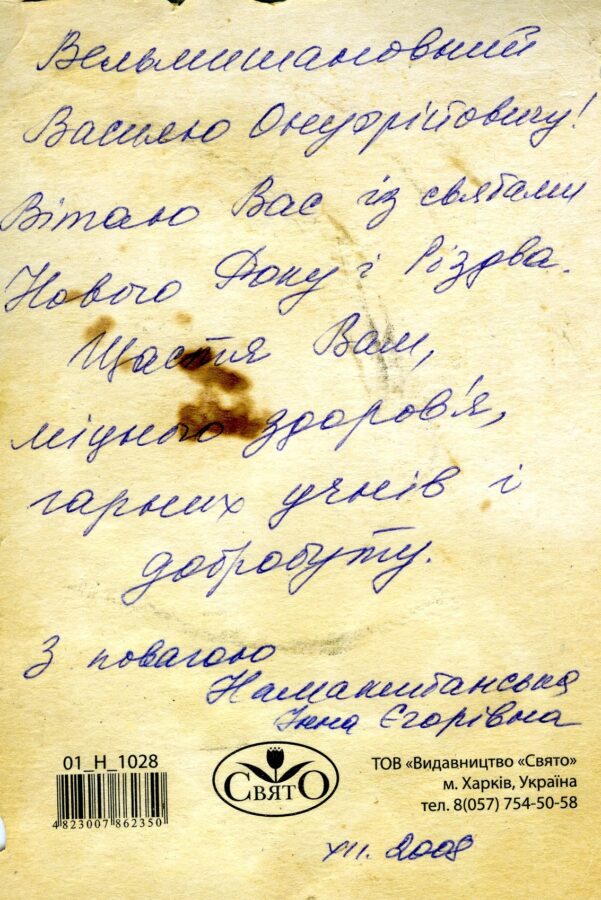 Вельмишановний
Василю Онуфрійовичу!
Вітаю Вас із святами
Нового Року і Різдва.
Щастя Вам,
міцного здоров'я,
гарних учнів і
добробуту.
З повагою
Інна Єгорівна
01_Н_1028
4823007862350
СВЯТО
ТОВ «Видавництво «Свято»
м. Харків, Україна
тел. 8(057) 754-50-58
XII. 2008